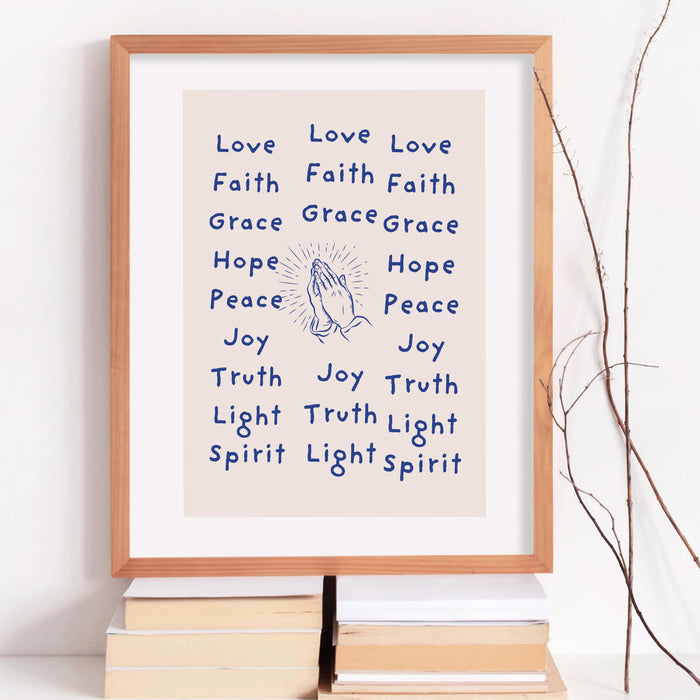 Love
Faith
Grace
Hope
Peace
Joy
Truth
Light
Spirit
Love
Faith
Grace
Joy
Truth
Light
Love
Faith
Grace
Hope
Peace
Joy
Truth
Light
Spirit